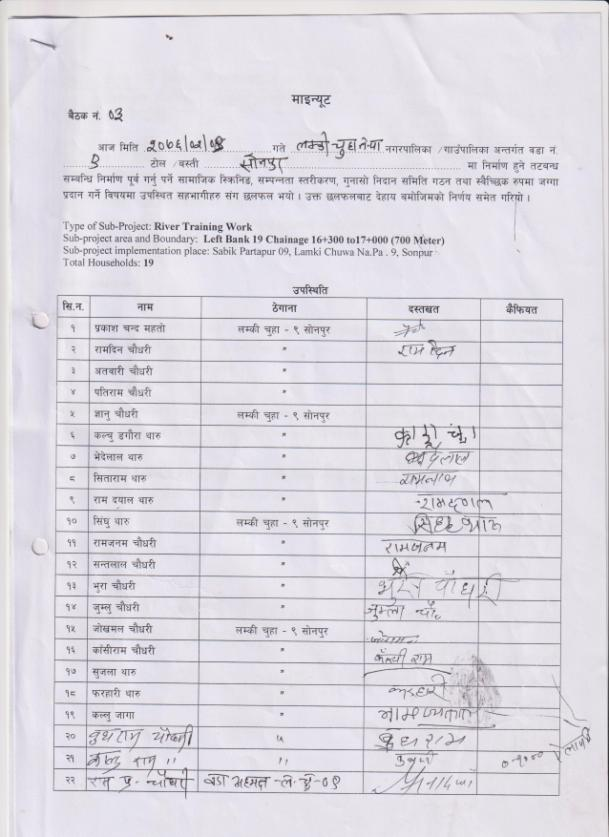 माइन्यूट
बैठक नं. 03
आज मिति २०७६/०२/०४ गते लम्की चुहा नगरपालिका /गाउँपालिका अन्तर्गत वडा नं.
९ टोल /बस्ती सोनपुर मा निर्माण हुने तटबन्ध
सम्बन्धि निर्माण पूर्व गर्नु पर्ने सामाजिक स्किनिङ, सम्पन्नता स्तरीकरण, गुनासो निदान समिति गठन तथा स्वैच्छिक रुपमा जग्गा
प्रदान गर्ने विषयमा उपस्थित सहभागीहरु संग छलफल भयो । उक्त छलफलबाट देहाय बमोजिमको निर्णय समेत गरियो ।
Type of Sub-Project: River Training Work
Sub-project area and Boundary: Left Bank 19 Chainage 16+300 to17+000 (700 Meter)
Sub-project implementation place: Sabik Partapur 09, Lamki Chuwa Na.Pa . 9, Sonpur
Total Households: 19
उपस्थिति
सि.न. नाम ठेगाना दस्तखत कैफियत
१ प्रकाश चन्द महतो लम्की चुहा - ९ सोनपुर
२ रामदिन चौधरी " राम दिन
३ अतवारी चौधरी "
४ पतिराम चौधरी "
५ ज्ञानु चौधरी लम्की चुहा - ९ सोनपुर
६ कल्चु डगौरा थारु "
७ भेदेलाल थारु "
८ सिताराम थारु "
९ राम दयाल थारु " रामदयाल
१० सिंघु थारु लम्की चुहा - ९ सोनपुर
११ रामजनम चौधरी " रामजनम
१२ सन्तलाल चौधरी "
१३ भुरा चौधरी " चौधरी
१४ जुम्लु चौधरी " जुम्ला चौ.
१५ जोखमल चौधरी लम्की चुहा - ९ सोनपुर
१६ काँसीराम चौधरी " राम
१७ सुजला थारु "
१८ फरहारी थारु "
१९ कल्लु जागा "
२० बुधराम चौधरी " बुधराम
२१ राम " "
२२ राम प्र. चौधरी वडा -ल.चु-०९